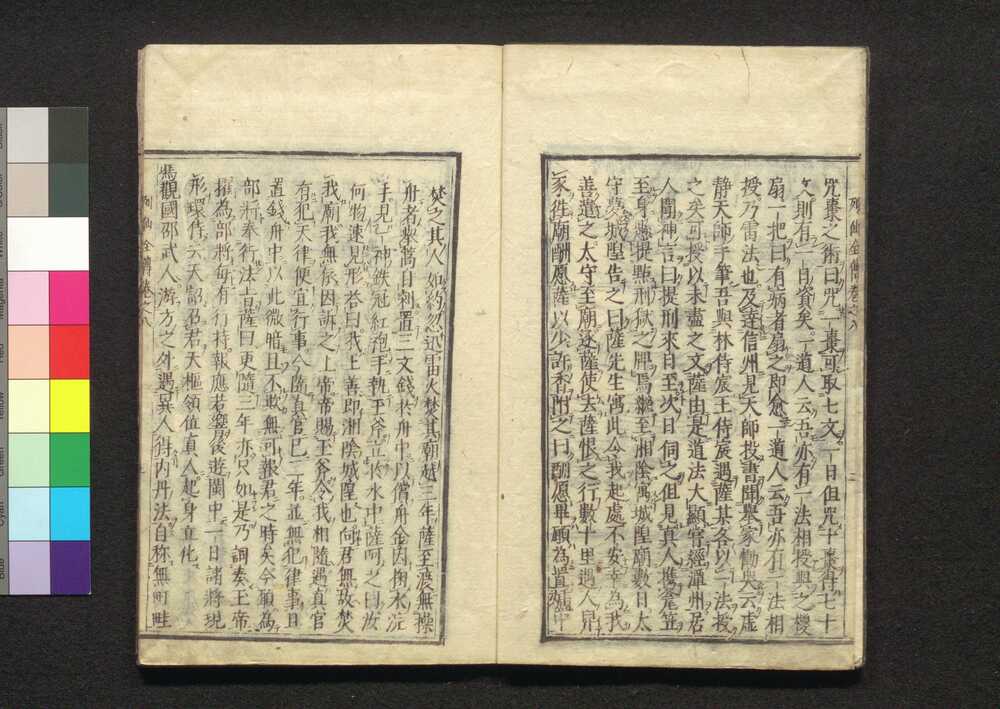 列仙全傳卷之八
咒棗之術曰咒一棗可取七文一日但咒十棗得七十
文則有一日資矣一道人云吾亦有一法相授與之椶
扇一把曰有病者扇之即愈一道人云吾亦有一法相
授乃雷法也及達信州見天師投書聞舉家慟哭云虛
靜天師手筆吾與林侍宸王侍宸遇薩某各以一法授
之矣可授以未盡之文薩由是道法大顯嘗經潭州居
人聞神言曰提刑來日至次日伺之但見真人携笠
至身懸提點刑獄之牌焉繼至湘陰寓城隍廟數日太
守夢城隍告之曰薩先生寓此令我起處不安幸為我
善遣之太守至廟逐薩使去薩恨之行數十里遇人舁
豕徃廟酬愿薩以少許香附之曰酬愿畢願為置爐中
焚之其人如約忽迅雷火焚其廟越三年薩至渡無操
舟者掌篙自刺置三文錢於舟中以償舟金因掬水浣
手見一神鉄冠紅袍手執玉斧立於水中薩呵之曰汝
何物速見形荅曰我上善即湘陰城隍也向君無故焚
我廟我無依因訴之上帝帝賜玉斧令我相隨遇真官
有犯天律便宜行事今隨真官已三年並無犯律事且
置錢舟中以此微暗且不欺無可報君之時矣今願為
部將奉行法旨薩曰更隨三年亦只如是乃詞奏上帝
擢為部將每有行持報應若響後遊閩中一日諸將現
形環侍云天詔召君天樞領位真人起身立化
馮觀國邵武人游方之外遇異人得内丹法自称無町畦
列仙全傳卷之八